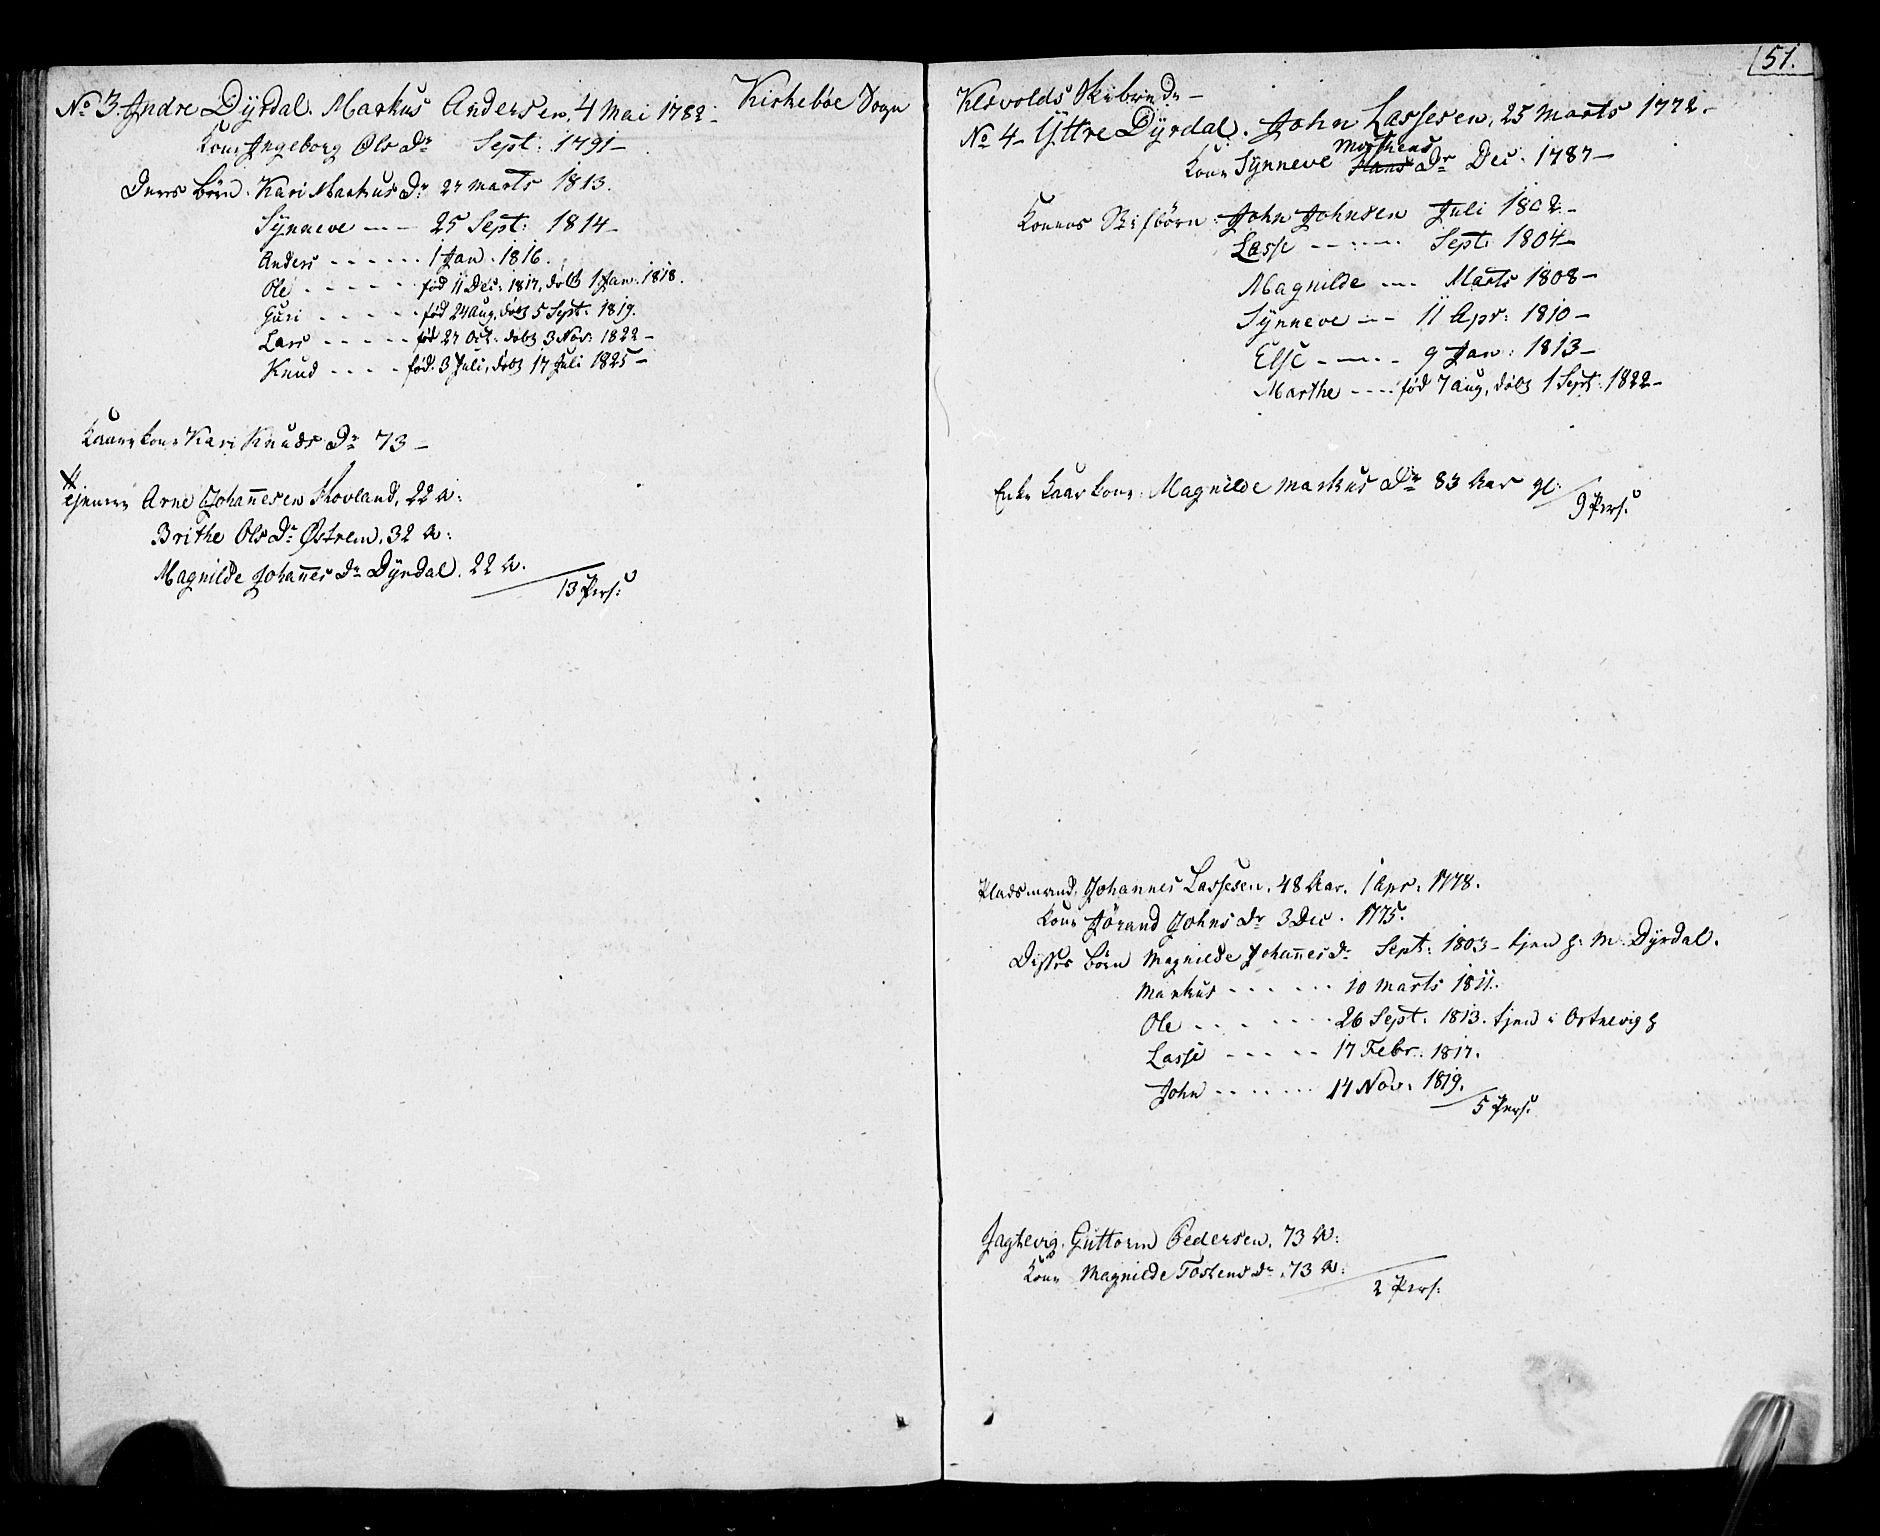 Kirkebøe Sogn
No 3. Indre Dÿrdal. Markus Andersen, 4 Mai 1782.
Kone Ingeborg Ols Dr Sept: 1791 –
Deres Børn. Kari Markus Dr 27 Marts 1813.
Sÿnneve – – 25 Sept: 1814 –
Anders - - - - - - 1 Jan. 1816.
Ole - - - - - - fød 11 Dec: 1817, døbt 1 Jan: 1818.
Guri - - - - - fød 24 Aug, døbt 5 Sept. 1819.
Lars - - - - - fød 27 Oct. døbt 3 Nov: 1822 –
Knud - - - - fød. 3 Juli, døbt 17 Juli 1825 –
Kaarekone Kari Knuds Dr 73 –
Tjenere Arne Johannesen Hovland, 22 A:
Brithe Ols Dr Østrem, 32 A:
Magnilde Johannes Dr Dÿrdal. 22 A.
13 Pers:
51.
Klævolds Skibrede –
No 4 – Yttre Dÿrdal. John Lassesen, 25 Marts 1772 –
Mothens
Kone Sÿnneve Hans Dr Dec. 1787 –
Konens Stifbørn. John Johnsen Juli 1802 –
Lasse - - - - - Sept: 1804 –
Magnilde - - - Marts 1808 –
Sÿnneve – – 11 Apr: 1810 –
Else - - - - 9 Jan: 1813 –
Marthe - - - - fød 7 Aug, døbt 1 Sept: 1822 –
Enke Kaarkone: Magnilde Markus Dr 83 Aar gl:
9 Pers:
Pladsmand. Johannes Lassesen, 48 Aar. 1 Apr. 1778.
Kone Jørand Johns Dr 3 Dec. 1775.
Disses Børn Magnilde Johannes Dr Sept: 1803 – tjen h: M. Dÿrdal.
Markus - - - - - - 10 Marts 1811.
Ole - - - - - - 26 Sept. 1813. tjen i Ortnevig
Lasse - - - - - 17 Febr. 1817.
John - - - - - - 14 Nov. 1819.
5 Pers.
Jagtevig. Guttorm Pedersen, 73 A:
Kone Magnilde Tostens Dr, 73 A:
2 Pers: